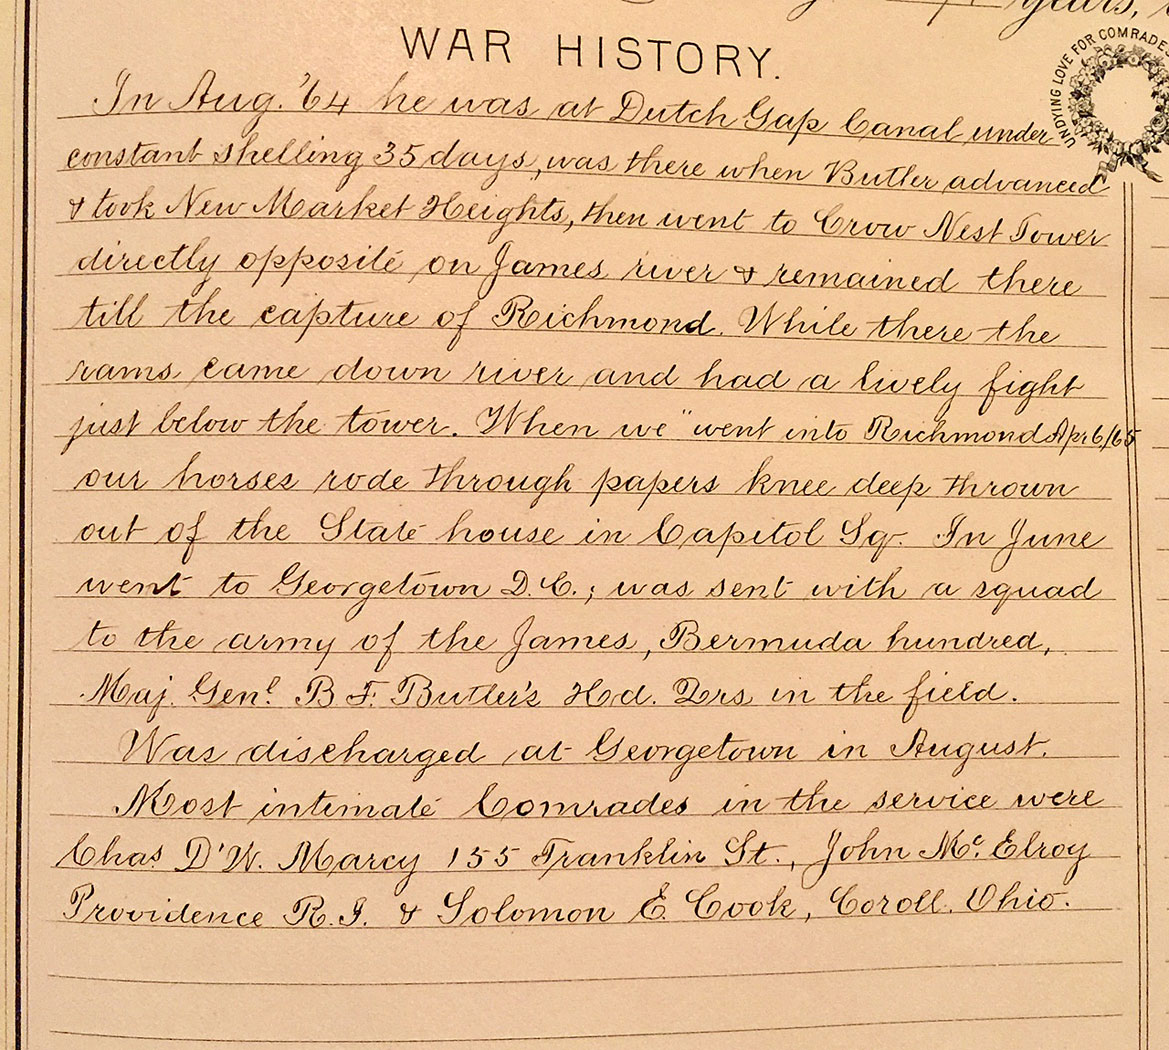 years,
WAR HISTORY.
UNDYING LOVE FOR COMRADES
In Aug. '64 he was at Dutch Gap Canal under
constant shelling 35 days, was there when Butler advanced
& took New Market Heights, then went to Crow Nest Tower
directly opposite on James river & remained there
till the capture of Richmond. While there the
rams came down river and had a lively fight
just below the tower. When we" went into Richmond Apr 6/65
our horses rode through papers knee deep thrown
out of the State house in Capitol Sq. In June
went to Georgetown D.C.; was sent with a squad
to the army of the James, Bermuda hundred,
Maj. Genl. B.F. Butler's Hd. Qrs in the field.
Was discharged at Georgetown in August.
Most intimate Comrades in the service were
Chas D'W. Marcy 155 Franklin St., John Mc. Elroy
Providence R.I. & Solomon E. Cook, Coroll. Ohio.